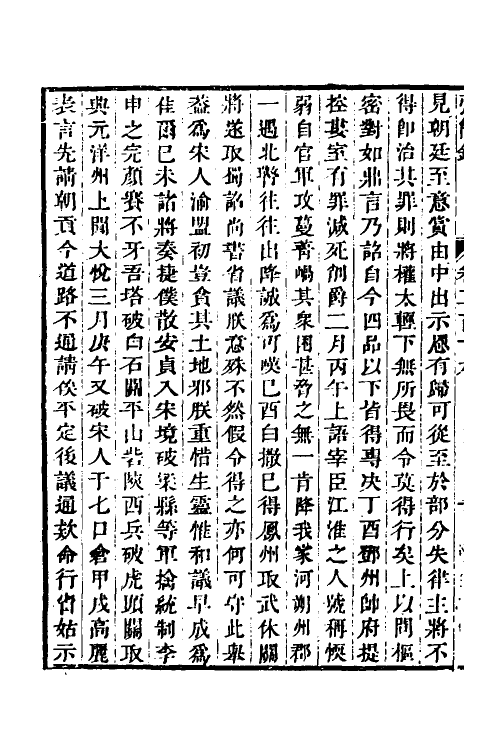 見朝廷至意賞由中出示恩有歸可從至於部分失律主將不
得卽治其罪則將權太輕下無所畏而令莫得行矣上以問樞
密對如鼎言乃詔自今四品以下皆得專決丁酉鄧州帥府提
控婁室有罪減死削爵二月丙午上語宰臣江淮之人號稱愞
弱自官軍攻蔓菁崓其衆困甚脅之無一肯降我家河朔州郡
一遇北警往往出降誠爲可嘆己酉白撒已得鳳州取武休關
將遂取蜀詔尚書省議朕意殊不然假令得之亦何可守此舉
蓋爲宋人渝盟初豈貪其土地邪朕重惜生靈惟和議早成爲
佳爾己未諸將奏捷僕散安貞入宋境破梁縣等軍擒統制李
申之完顏賽不牙吾塔破白石關平山砦陝西兵破虎頭關取
興元洋州上聞大悅三月庚午又破宋人于七口倉甲戌高麗
表言先請朝貢今道路不通請俟平定後議通款命行省姑示